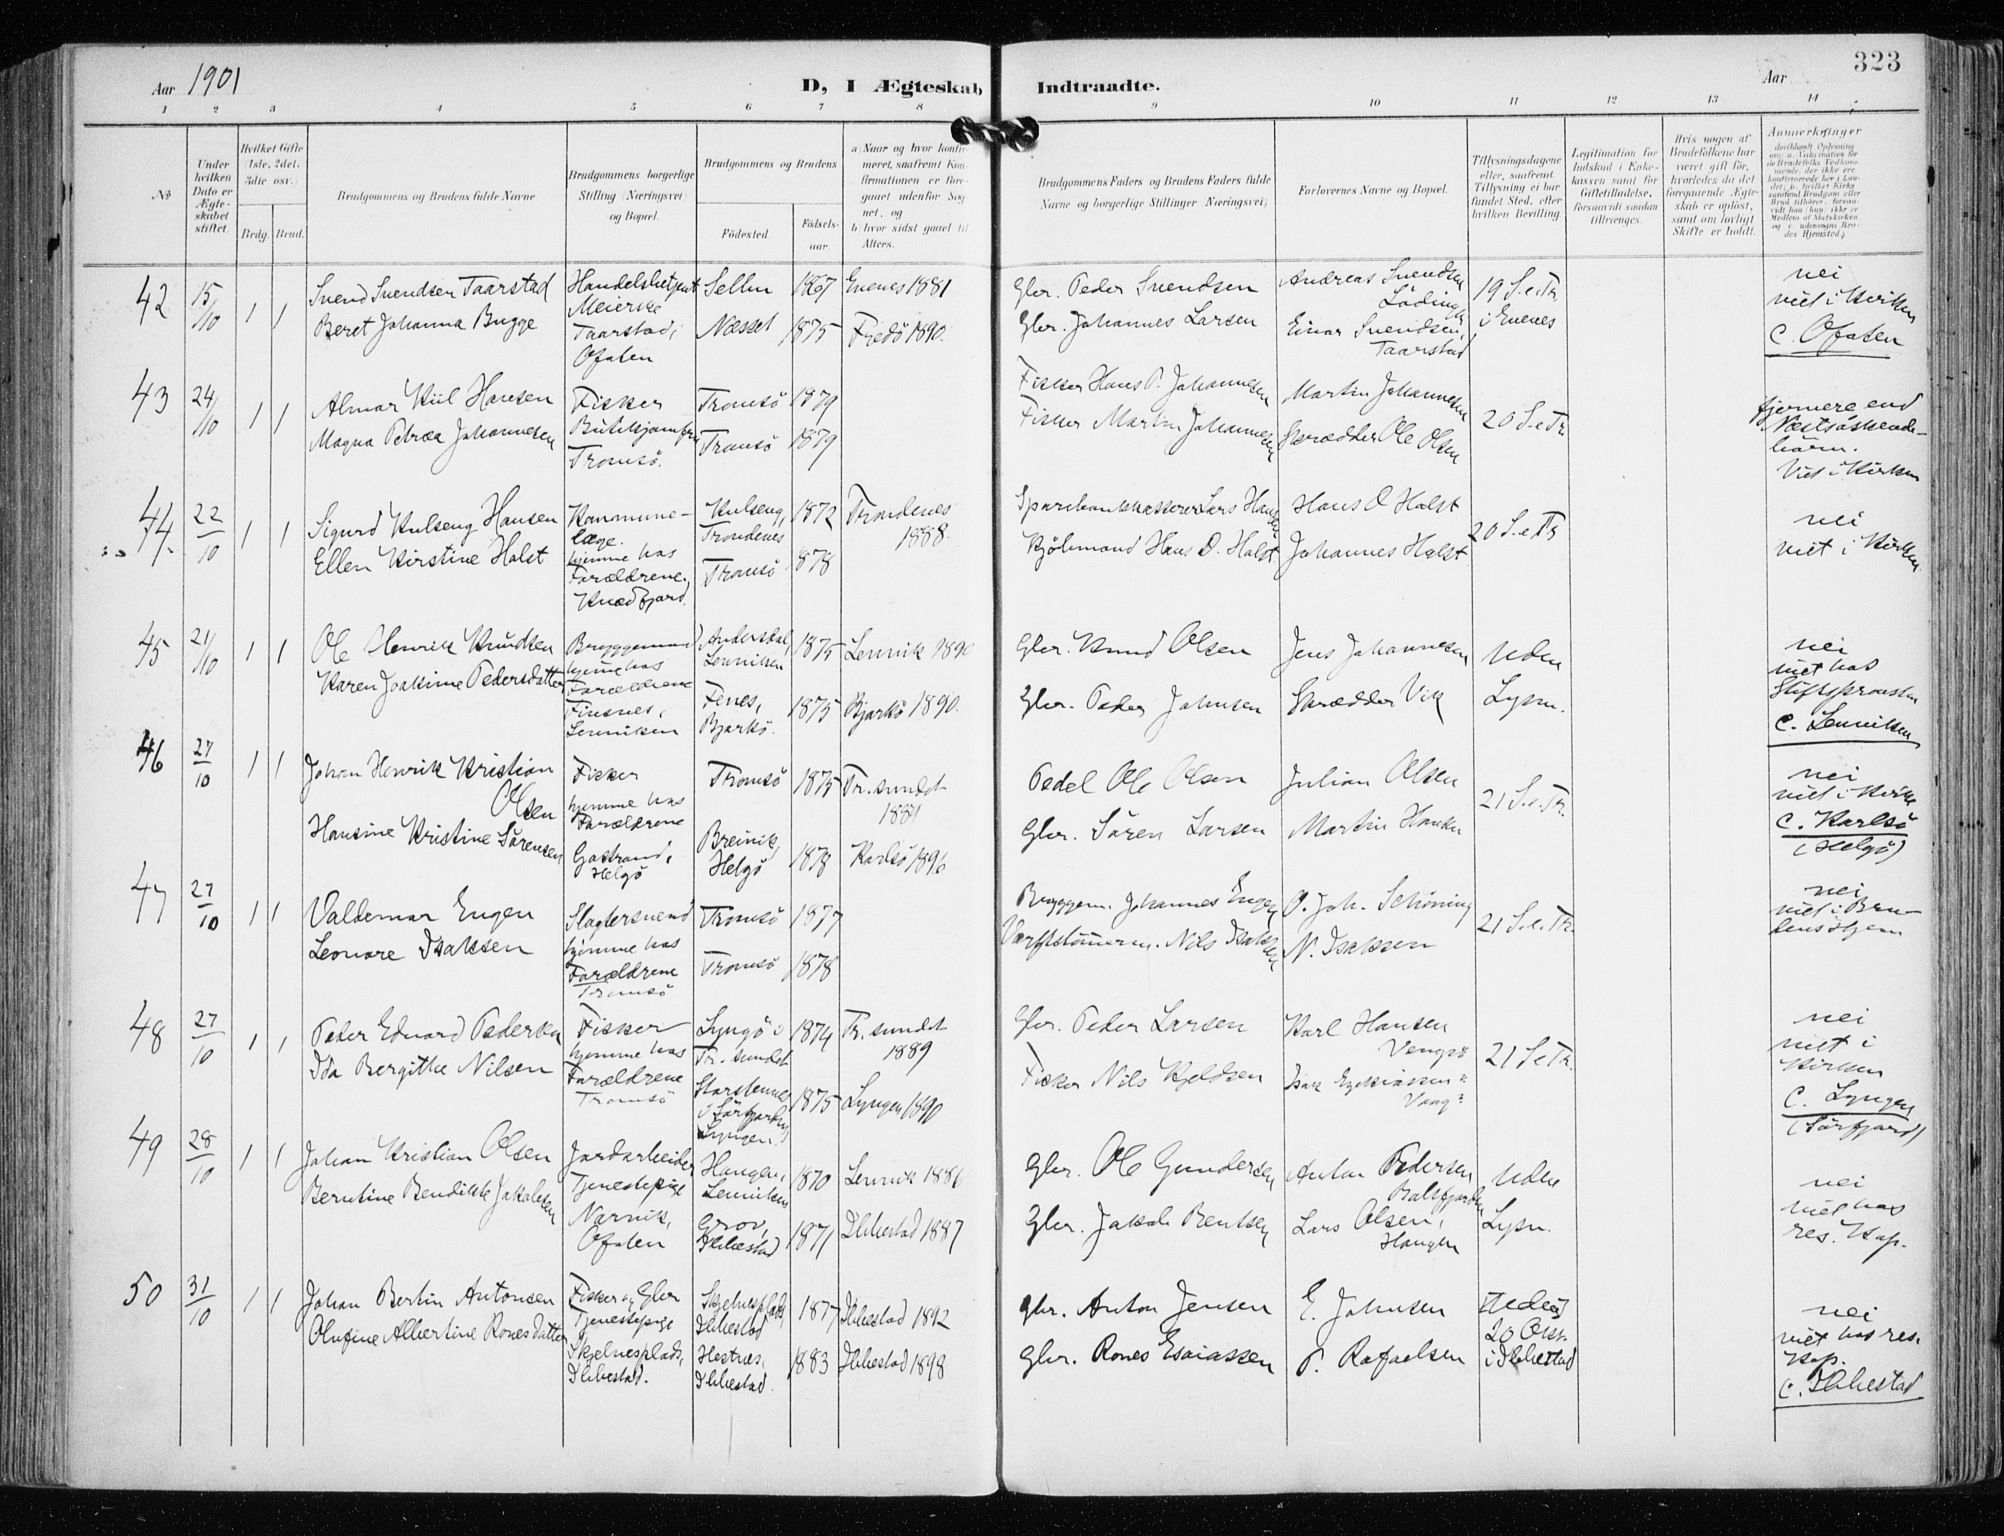 Aar 1901
D, I Ægteskab Indtraadte.
Aar
323
1 2 3 4 5 6 7 8 9 10 11 12 13 14
No
Under hvilken Dato er Ægteskabet stiftet.
Hvilket Gifte (1ste, 2det, 3die osv.)
Brdg. Brud.
Brudgommens og Brudens fulde Navne
Brudgommens borgerlige Stilling (Næringsvei) og Bopæl.
Brudgommens og Brudens
Fødested.
Fødselsaar.
a) Naar og hvor konfirmeret, saafremt Konfirmationen er foregaaet udenfor Sognet, og
b) hvor sidst gaaet til Alters.
Brudgommens Faders og Brudens Faders fulde Navne og borgerlige Stillinger Næringsvei)
Forlovernes Navne og Bopæl.
Tillysningsdagene eller, saafremt Tillysning ei har fundet Sted, efter hvilken Bevilling.
Legitimation for Indskud i Enkekassen samt for Giftetilladelse, forsaavidt saadan tiltrænges.
Hvis nogen af Brudefolkene har været gift før, hvorledes da det foregaaende Ægteskab er opløst, samt om lovligt Skifte er holdt.
Anmerkninger
42 15/10 1 1
Svend Svendsen Taarstad
Beret Johanna Bugge
Handelsbetjent
Meierske
Taarstad,
Ofoten
Sellm 1867 Evenes 1881
Næsset 1875 Fredö 1890.
Gbr. Peder Svendsen
Gbr. Johannes Larsen
Andreas Svendsen
Lödingen
Einar Svendsen,
Taarstad
19 S.e.Tr.
i Evenes
nei
viet i Kirken
c. Ofoten
43 24/10 1 1
Almar Kiil Hansen
Magna Petrea Johannesen
Fisker
Butikjomfru
Tromsö.
Tromsö 1879
Tromsö 1879
Fisker Hans P. Johannesen
Fisker Martin Johannesen
Martin Johannesen
Skrædder Ole Olsen
20 S.e.Tr.
fjernere end
Næstsöskende-
börn.
Viet i Kirken
44. 22/10 1 1
Sigurd Kulseng Hansen
Ellen Kirstine Holst
Kommune-
læge.
hjemme hos
Forældrene.
Kvædfjord.
Kulseng,
Trondenes 1872
Trondenes
1888.
Tromsö 1878
Sparebankkasserer Lars Hansen
Kjöbmand Hans O. Holst
Hans O Holst
Johannes Holst
20 S.e.Tr
nei
viet i Kirken
45 21/10 1 1
Ole Henrik Knudsen
Karen Joakime Pedersdatter
Bryggemand
hjeme hos
Forældrene
Finsnes,
Lenviken
Andersdal,
Lenviken 1875 Lenvik 1890
Fenes,
Bjarkö. 1875 Bjarkö 1890.
Gbr. Knud Olsen
Gbr. Peder Johnsen
Jens Johannesen
Skrædder Vik
Uden
Lysn.
nei
viet hos
Stiftsprovsten
c. Lenviken
46 27/10 1 1
Johan Henrik Kristian
Olsen
Hansine Kristine Sörensen
Fisker
hjemme hos
Forældrene
Gaastrand,
Helgö
Tromsö 1875 Tr.sundet
1881
Breivik,
Helgö 1878 Karlsö 1896
Pedel Ole Olsen
Gbr. Sören Larsen
Julian Olsen
Martin Hansen
21 S.e.Tr.
nei
viet i Kirke
c. Karlsö
(Helgö)
47 27/10 1 1
Valdemar Engen
Leonore Isaksen
Slagtersvend
hjemme hos
Forældrene
Tromsö
Tromsö 1877
Tromsö 1878
Bryggem. Johannes Engen
Værftstömerm. Nils Isaksen
O. Joh. Schöning
N. Isaksen
21 S.e.Tr.
nei
viet i Bru-
dens Hjem
48 27/10 1 1
Peder Edvard Pedersen
Ida Bergithe Nilsen
Fisker
hjemme hos
Forældrene
Tromsö
Lyngö i
Tr. sundet 1874 Tr. sundet
1889
Storstennes
i Sörfjorden
Lyngen. 1875 Lyngen 1890
Gbr. Peder Larsen
Fisker Nils Kjeldsen
Karl Hansen
Vengsö
Isak Ezekiassen
21 S.e.Tr.
nei
viet i
Kirken
c. Lyngen
(Sörfjord)
49 28/10 1 1
Johan Kristian Olsen
Berntine Bendikte Jakobsen
Jordarbeider
Tjenestepige
Narvik,
Ofoten
Haugen,
Lenviken 1870 Lenvik 1886
Grov,
Ibbestad 1871 Ibbestad 1887
Gbr. Ole Gundersen
Gbr. Jakob Bentsen
Anton Pedersen
Balsfjorden
Lars Olsen,
Haugen
Uden
Lysn.
nei
viet hos
res. Kap.
50 31/10 1 1
Johan Bertin Antonsen
Olufine Albertine Ronesdatter
Fisker og Gbr
Tjenestepige
Skjelnesplads,
Ibbestad.
Skjelnesplads,
Ibbestad 1877 Ibbestad 1892
Hestnes,
Ibbestad. 1883 Ibbestad 1898
Gbr. Anton Jensen
Gbr. Rones Esaiassen
E. Johnsen
P. Rafaelsen
20 Okt.
i Ibbestad
nei
viet hos res.
Kap.
c. Ibbestad